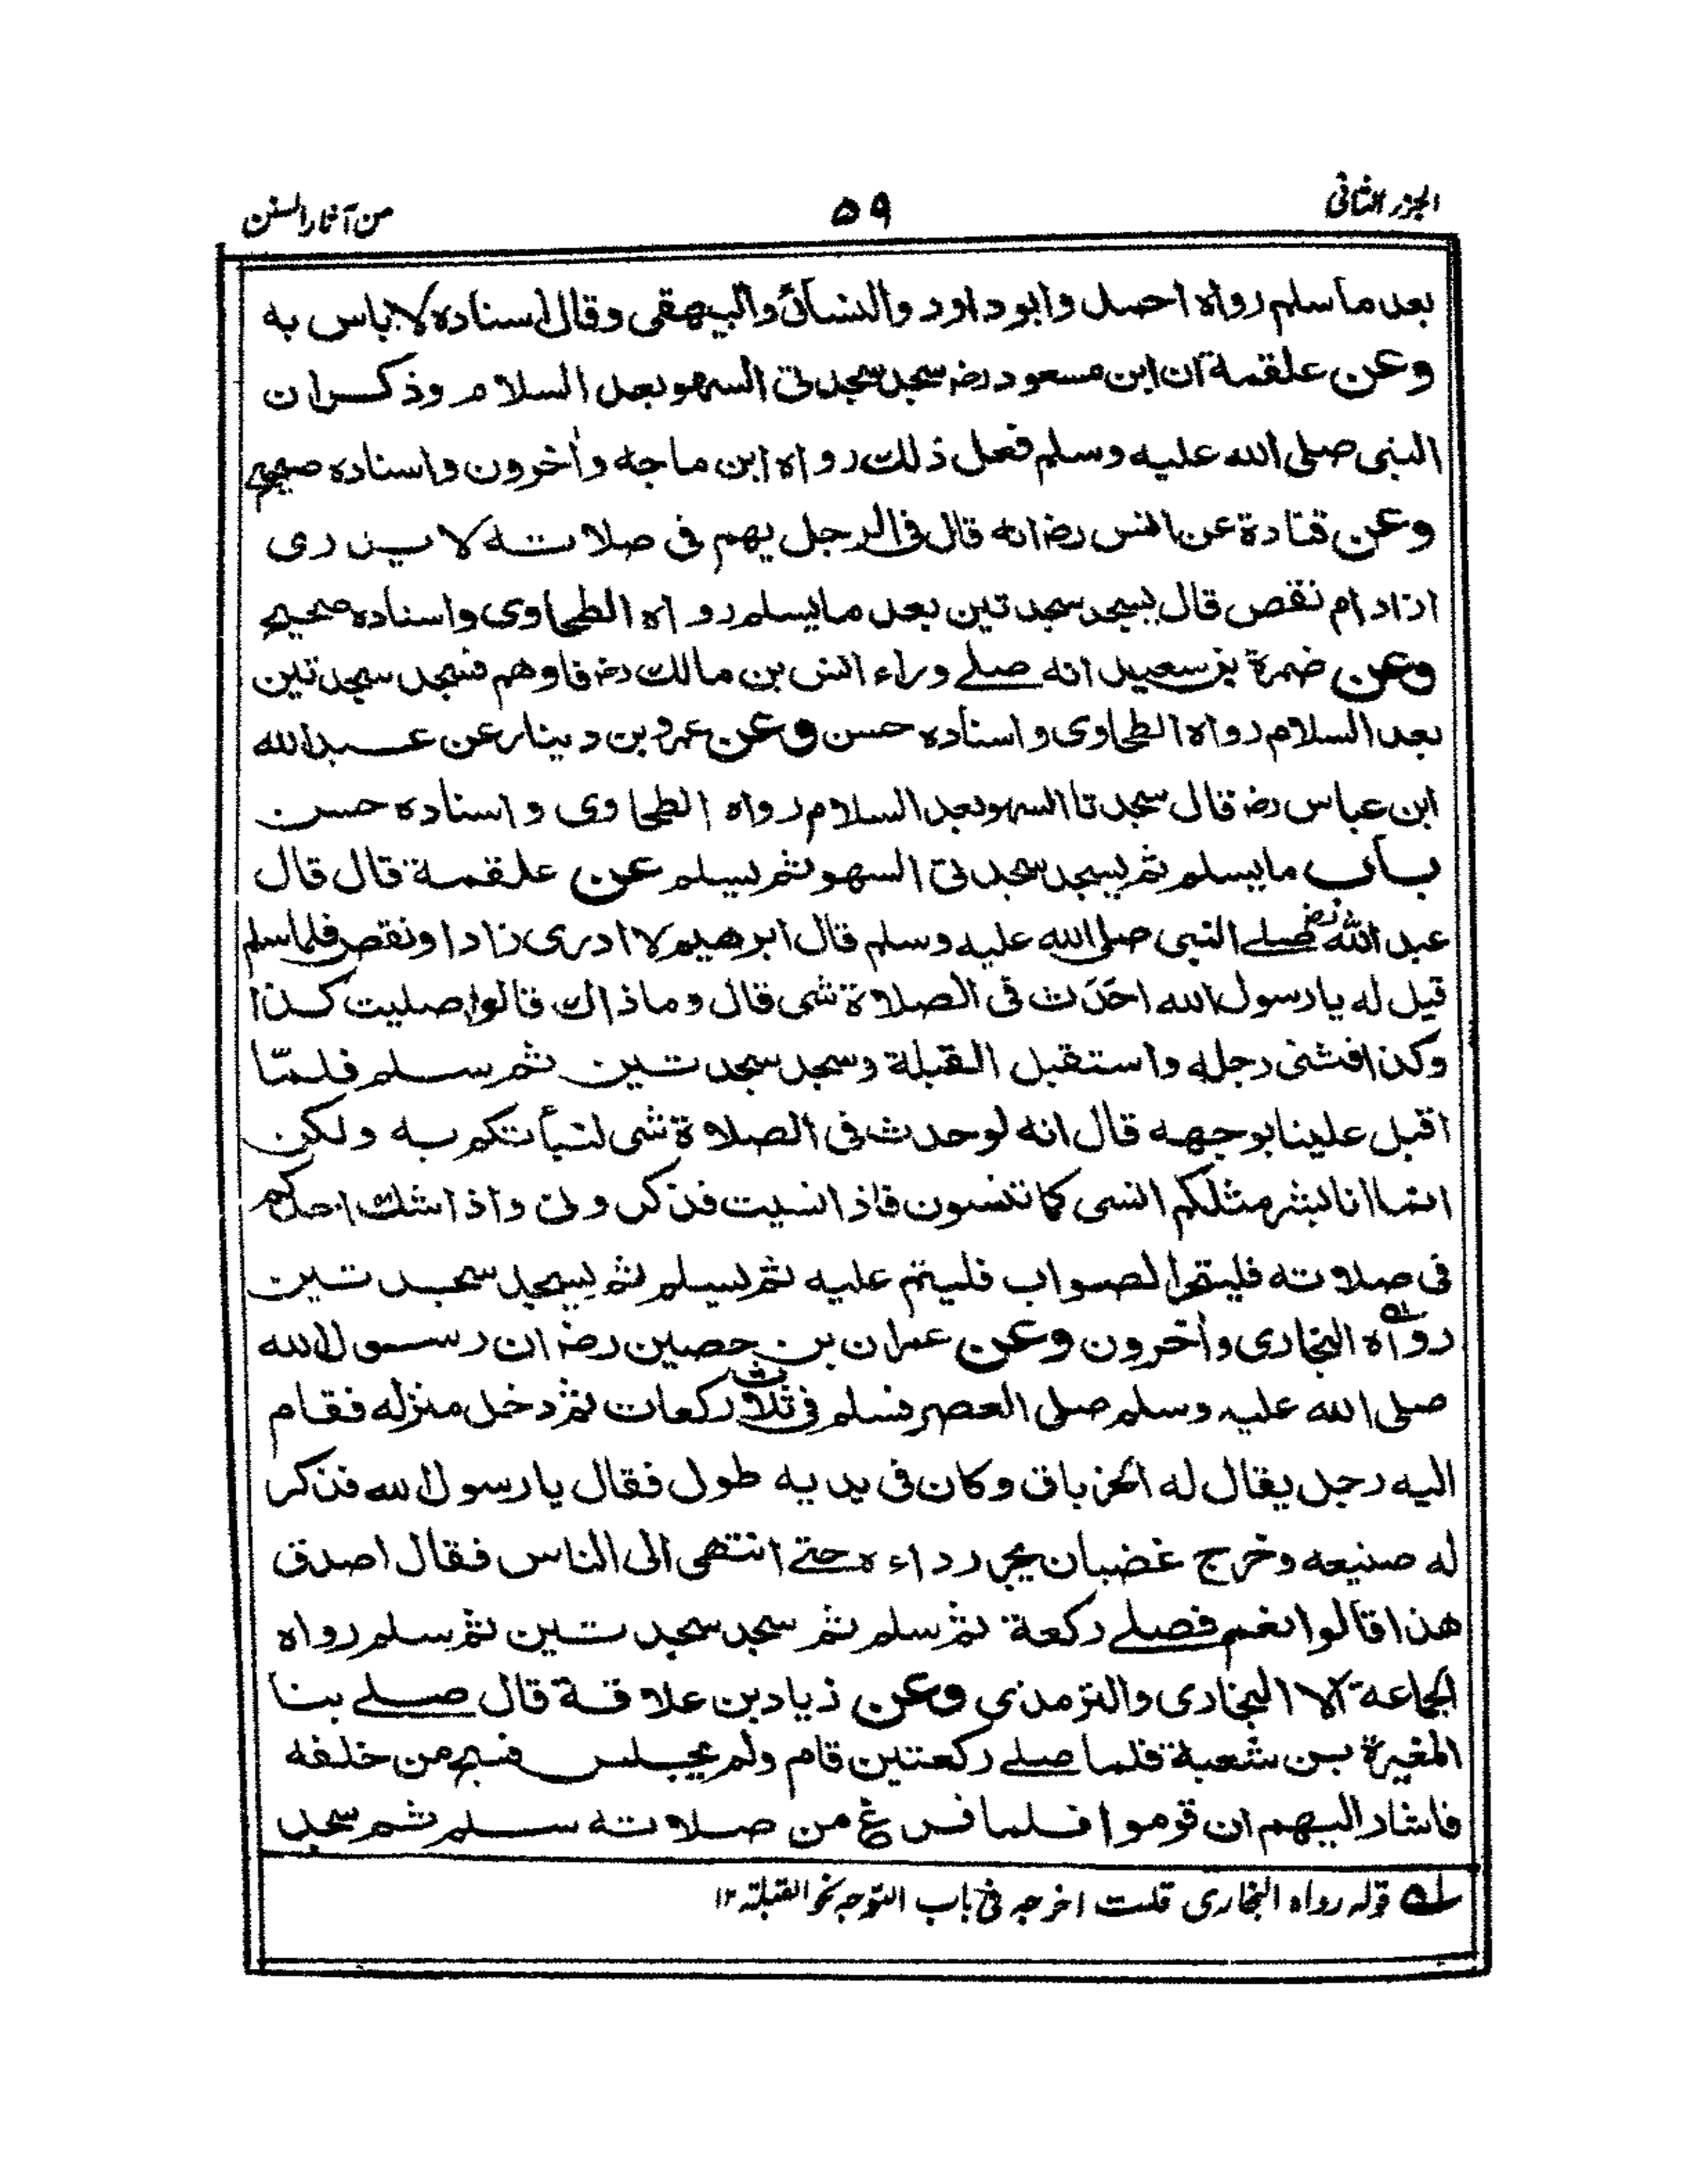 الجزء الثانى
٥٩
من آثار السنن
بعد ما سلم رواه احمد وابو داود والنسائ والبيهقى وقال اسناده لا باس به
وعن علقمة ان ابن مسعود رضـ سجد سجدتى السهو بعد السلام وذكر ان
النبى صلى الله عليه وسلم فعل ذلك رواه ابن ماجه وأخرون واسناده صحيح
وعن قتادة عن انس رضـ انه قال فى الرجل يهم فى صلاته لا يدرى
ازاد ام نقص قال يسجد سجدتين بعد ما يسلم رواه الطحاوى واسناده صحيح
وعن ضمرة بن سعيد انه صلے وراء انس بن مالك رضـ فاوهم فسجد سجدتين
بعد السلام رواه الطحاوى واسناده حسن وعن عمرو بن دينار عن عبد الله
ابن عباس رضـ قال سجدتا السهو بعد السلام رواه الطحاوى واسناده حسن
باب ما يسلم ثم يسجد سجدتى السهو ثم يسلم عن علقمة قال قال
عبد الله رضـ صلے النبى صلى الله عليه وسلم قال ابرهيم لا ادرى زاد او نقص فلما سلم
قيل له يا رسول الله احَدَث فى الصلاة شى قال وما ذاك قالوا صليت كذا
وكذا فثنى رجله واستقبل القبلة وسجد سجدتين ثم سلم فلمّا
اقبل علينا بوجهه قال انه لو حدث فى الصلاة شى لنبأتكم به ولكن
انما انا بشر مثلكم انسى كما تنسون فاذا نسيت فذكرونى واذا شك احدكم
فى صلاته فليتحر الصواب فليتم عليه ثم يسلم ثم يسجد سجدتين
رواه ـلـه البخارى وأخرون وعن عمران بن حصين رضـ ان رسول الله
صلى الله عليه وسلم صلى العصر فسلم فى ثلاث ركعات ثم دخل منزله فقام
اليه رجل يقال له الخرباق وكان فى يديه طول فقال يا رسول الله فذكر
له صنيعه وخرج غضبان يجر رداءه حتے انتهى الى الناس فقال اصدق
هذا قالوا نعم فصلے ركعة ثم سلم ثم سجد سجدتين ثم سلم رواه
الجماعة الا البخارى والترمذى وعن زياد بن علاقة قال صلے بنا
المغيرة بن شعبة فلما صلے ركعتين قام ولم يجلس فسبح من خلفه
فاشار اليهم ان قوموا فلما فرغ من صلاته سلم ثم سجد
ـلـه قوله رواه البخارى قلت اخرجه فى باب التوجه نحو القبلة ١٢